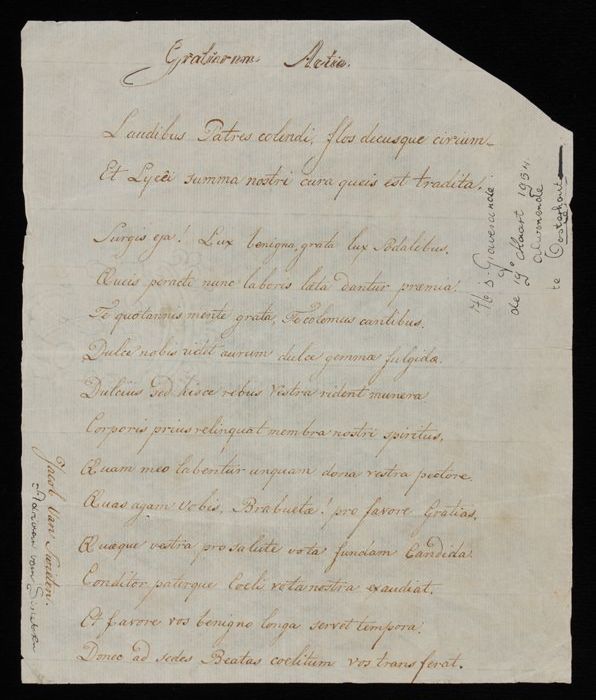 Gratiarum Actio.
Laudibus Patres colendi, flos decusque civium
Et Lycêi summa nostri cura queis est tradita!
Surgis eja! Lux benigna, grata lux Sodalibus.
Queis peracti nunc laboris læta dantur præmia!
Te quotannis mente grata, Te colemus cantibus.
Dulce nobis ridet aurum dulce gemma fulgida.
Dulcius sed hisce rebus vestra rident munera
Corporis prius relinquat membra nostri spiritus.
Quam meo labentur unquam dona vestra pectore.
Quas agam vobis, Brabeuta! pro favore Gratias.
Quæque vestra pro salute vota fundam Candida.
Conditor paterque Coeli vota nostra exaudiat.
Et favore vos benigno longa servet tempora.
Donec ad sedes Beatas coelitum vos transferat.
Jacob Van
Adriaan van
's Gravesande
de 19e Maart 1954
te Oosterhout